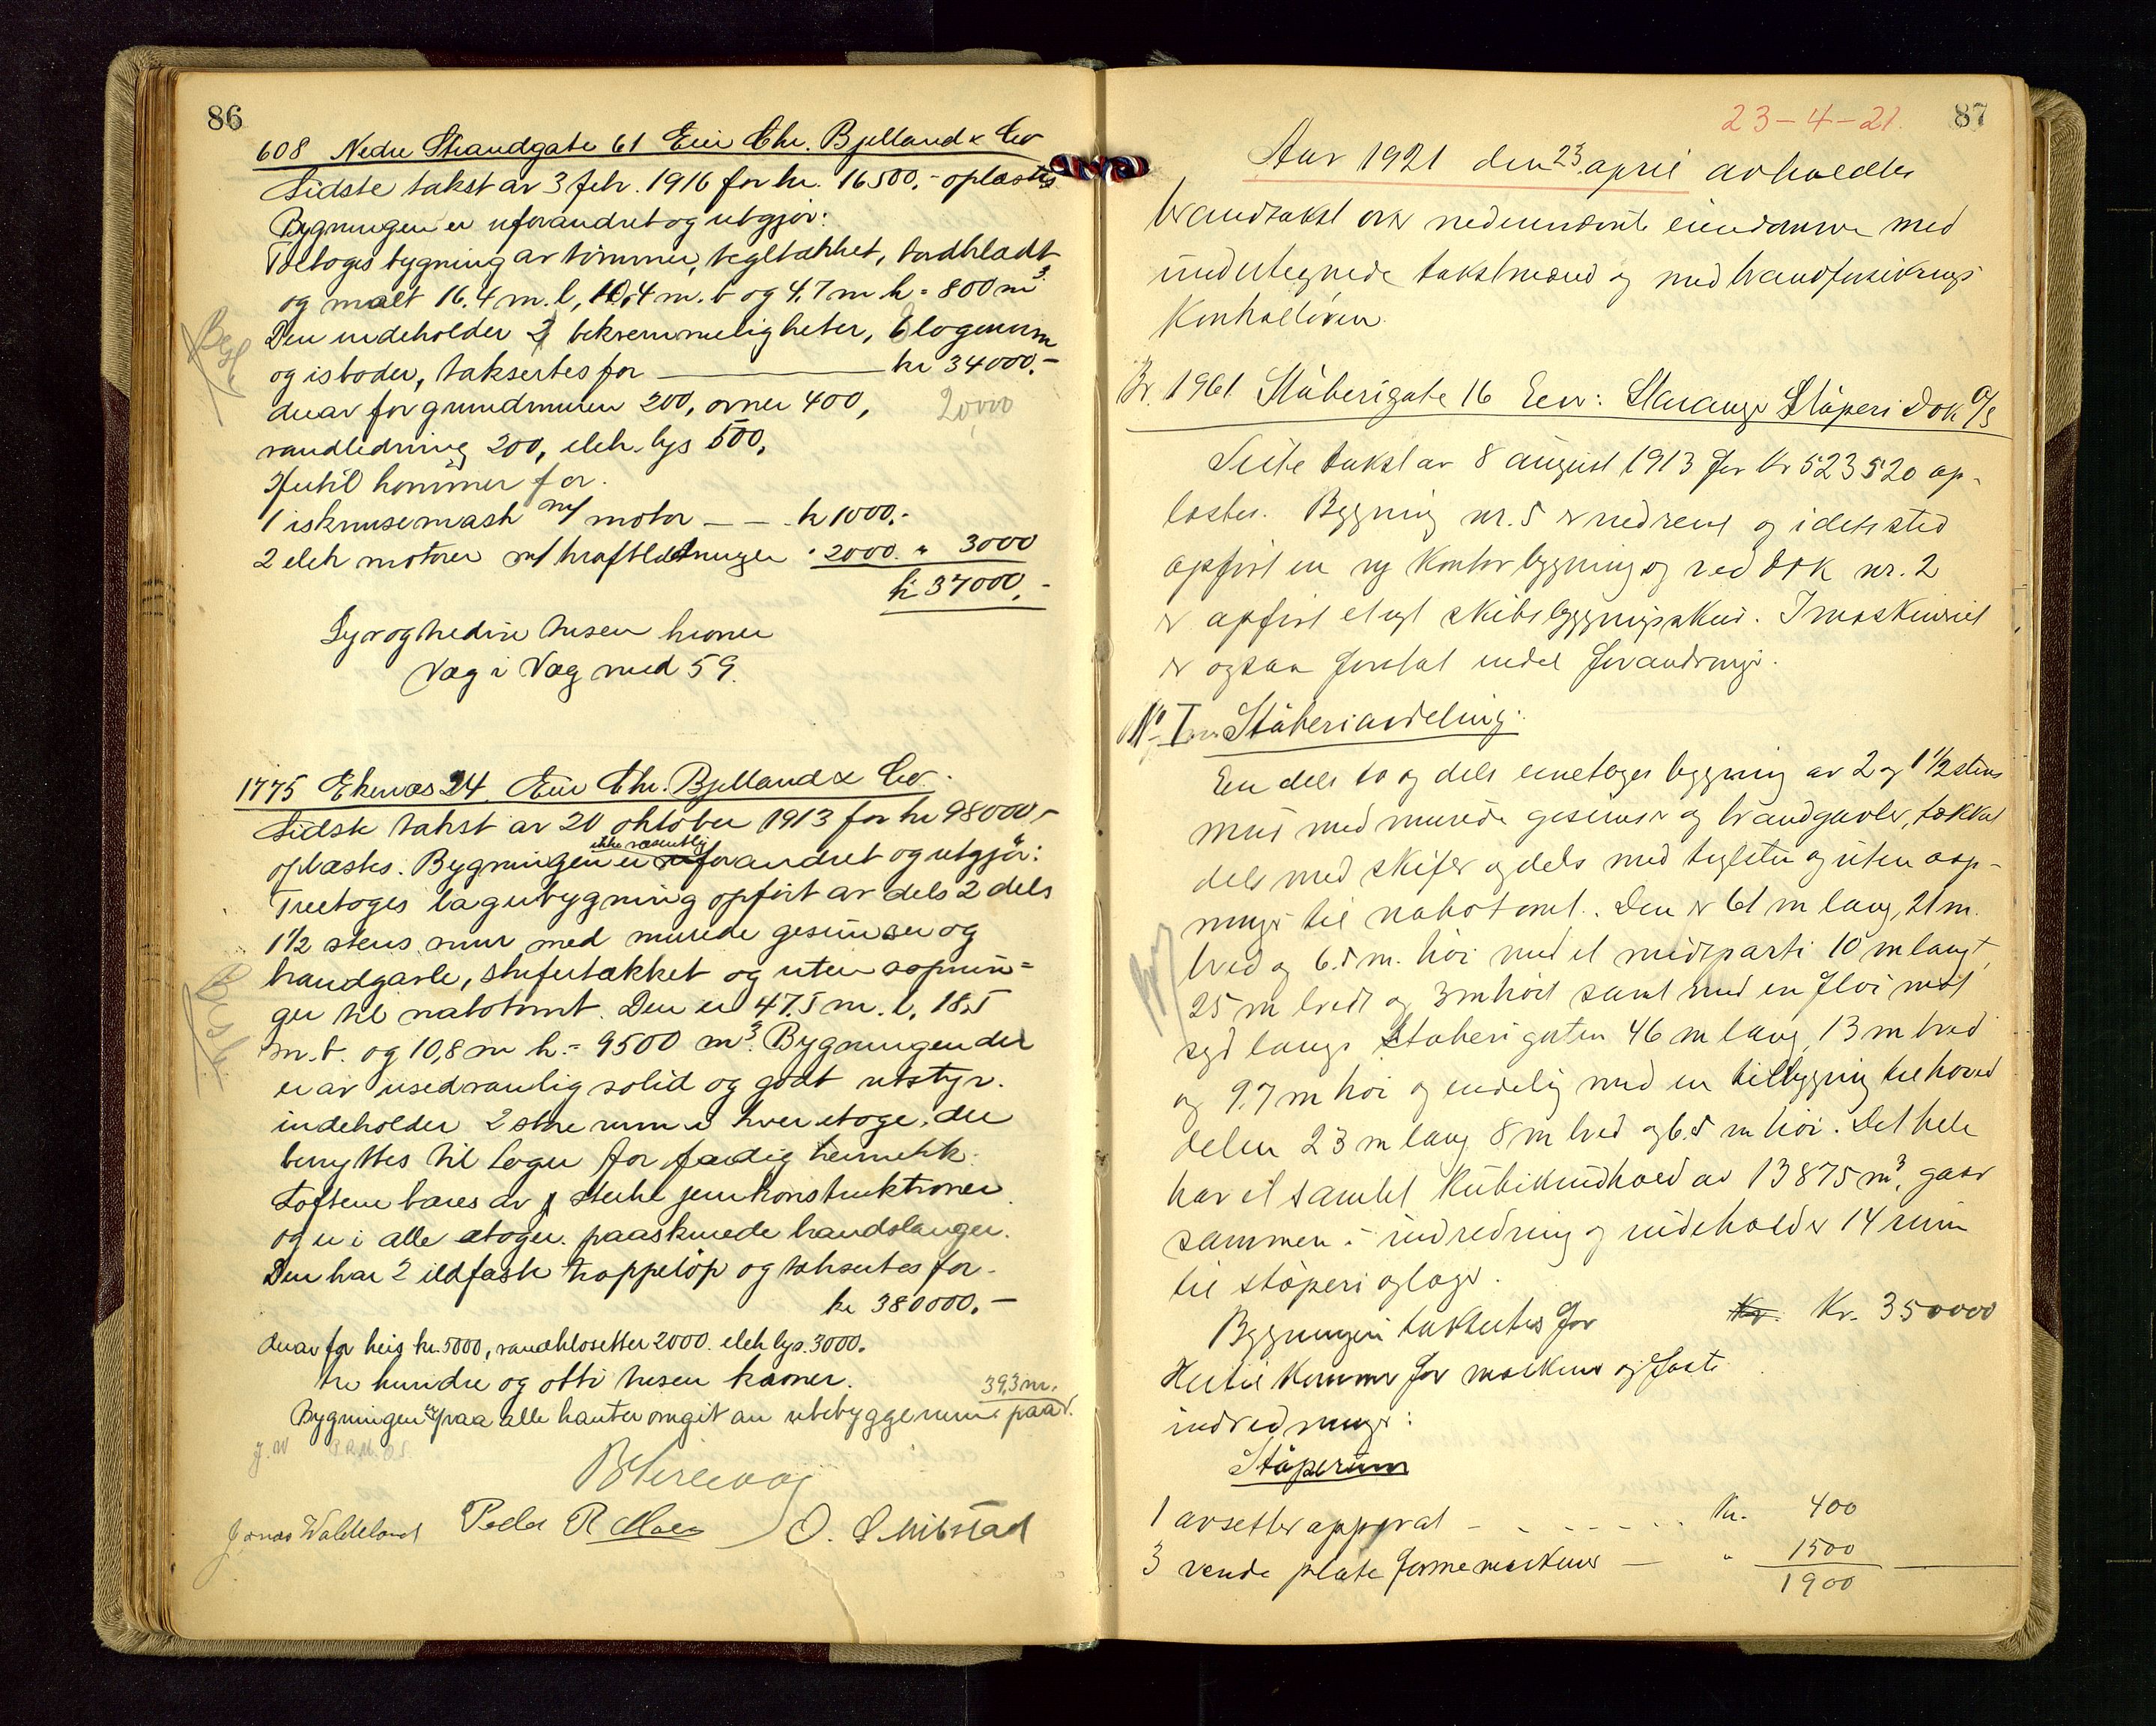 86
608 Nedre Strandgate 61 Eier Chr. Bjelland & Co
Sidste takst av 3 febr. 1916 for kr. 16500,- oplæstes
Bygningen er uforandret og utgjør:
Toetages bygning av tømmer, tegltækket, bordklædt
og malt 16.4 m. l, 10,4 m. b og 4,7 m h = 800 m³
Den indeholder 2 bekvemmeligheter, 6 lagerrum
og isboder, taksertes for kr 34000.-
derav for grundmuren 200, ovner 400, 20000
vandledning 200, elek. lys 500,
Hertil kommer for
1 isknusemask m/ motor - - kr 1000,-
2 elek motorer m/ kraftledninger " 2000. " 3000
kr 37000,-
Syv og tredive tusen kroner
Væg i Væg med 59.
1775 Ekenæs 24. Eier Chr. Bjelland & Co.
Sidste takst av 20 oktober 1913 for kr 98000,-
ikke væsentlig
oplæstes. Bygningen er uforandret og utgjør:
Treetages lagerbygning opført av dels 2 dels
1½ stens mur med murede gesimser og
brandgavle, skifertækket og uten aapnin=
ger til nabotomt. Den er 47.5 m. l, 18,5
m. b. og 10,8 m h. = 9500 m³. Bygningen der
er av usedvanlig solid og godt utstyr.
indeholder 2 store rum i hver etage, der
benyttes til lager for færdig hermetik.
Loftene bæres av sterke jernkonstruktioner
og er i alle etager paaskruede brandslanger.
Den har 2 ildfaste trappeløp og taksertes for
kr 380000.-
derav for heis kr. 5000, vandklosetter 2000. elek lys. 3000.
tre hundre og otti tusen kroner.
39,3 m.
Bygningen er paa alle kanter omgit av ubebygget rum paa
J. W P.R.M. O.S.
Jonas Waldeland Peder R Moen O. S. Mibstad
23-4-21. 87
Aar 1921 den 23 april avholdtes
brandtakst over nedennævnte eiendomme med
undertegnede takstmænd og med brandforsikrings
Kontrolløren.
Br. 1961. Støberigate 16 Eier: Stavanger Støperi & Dok A/S
Siste takst av 8 august 1913 for Kr 523520 op-
læstes. Bygning nr. 5 er nedrevet og i dets sted
opført en ny Kontorbygning og ved Dok nr. 2
er opført et nyt skibsbygningsskur. I maskineriet
er ogsaa foretat endel forandringer.
No I Støberiavdeling:
En dels to og dels enetages bygning av 2 og 1½ stens
mur med murede gesimser og brandgavler, tækket
dels med skifer og dels med teglsten og uten aap-
ninger til nabotomt. Den er 61 m lang, 21 m.
bred og 6.5 m. høi med et midtparti 10 m langt,
25 m bredt og 3 m høit samt med en fløi mot
syd langs Støberigaten 46 m lang, 13 m bred
og 9.7 m høi og endelig med en tilbygning til hoved
delen 23 m lang 8 m bred og 6.5 m høi. Det hele
har et samlet Kubikindhold av 13875 m³, gaar
sammen i indredning og indeholder 14 rum
til støperi og lager.
Bygningen taksertes for Kr. 350000
Hertil kommer for maskiner og faste
indredninger:
Støperum
1 avsetter apparat - - - - - - Kr. 400
3 vende plate formemaskiner — " 1500
1900